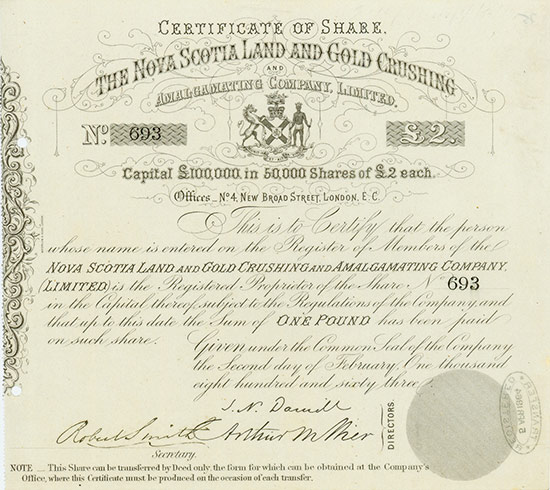 CERTIFICATE OF SHARE.
THE NOVA SCOTIA LAND AND GOLD CRUSHING
AND
AMALGAMATING COMPANY, LIMITED.
No. 693 £2.
Capital £100,000, in 50,000 Shares of £2 each.
Offices _ No 4, NEW BROAD STREET, LONDON, E.C.
This is to Certify that the person
whose name is entered on the Register of Members of the
NOVA SCOTIA LAND AND GOLD CRUSHING AND AMALGAMATING COMPANY,
(LIMITED) is the Registered Proprietor of the Share No 693
in the Capital thereof, subject to the Regulations of the Company, and
that up to this date the Sum of ONE POUND has been paid
on such share. Given under the Common Seal of the Company
the Second day of February, One thousand
eight hundred and sixty three.
Robert Smith Arthur
Secretary.
DIRECTORS.
NOTE _ This Share can be transferred by Deed only, the form for which can be obtained at the Company's
Office, where this Certificate must be produced on the occasion of each transfer.